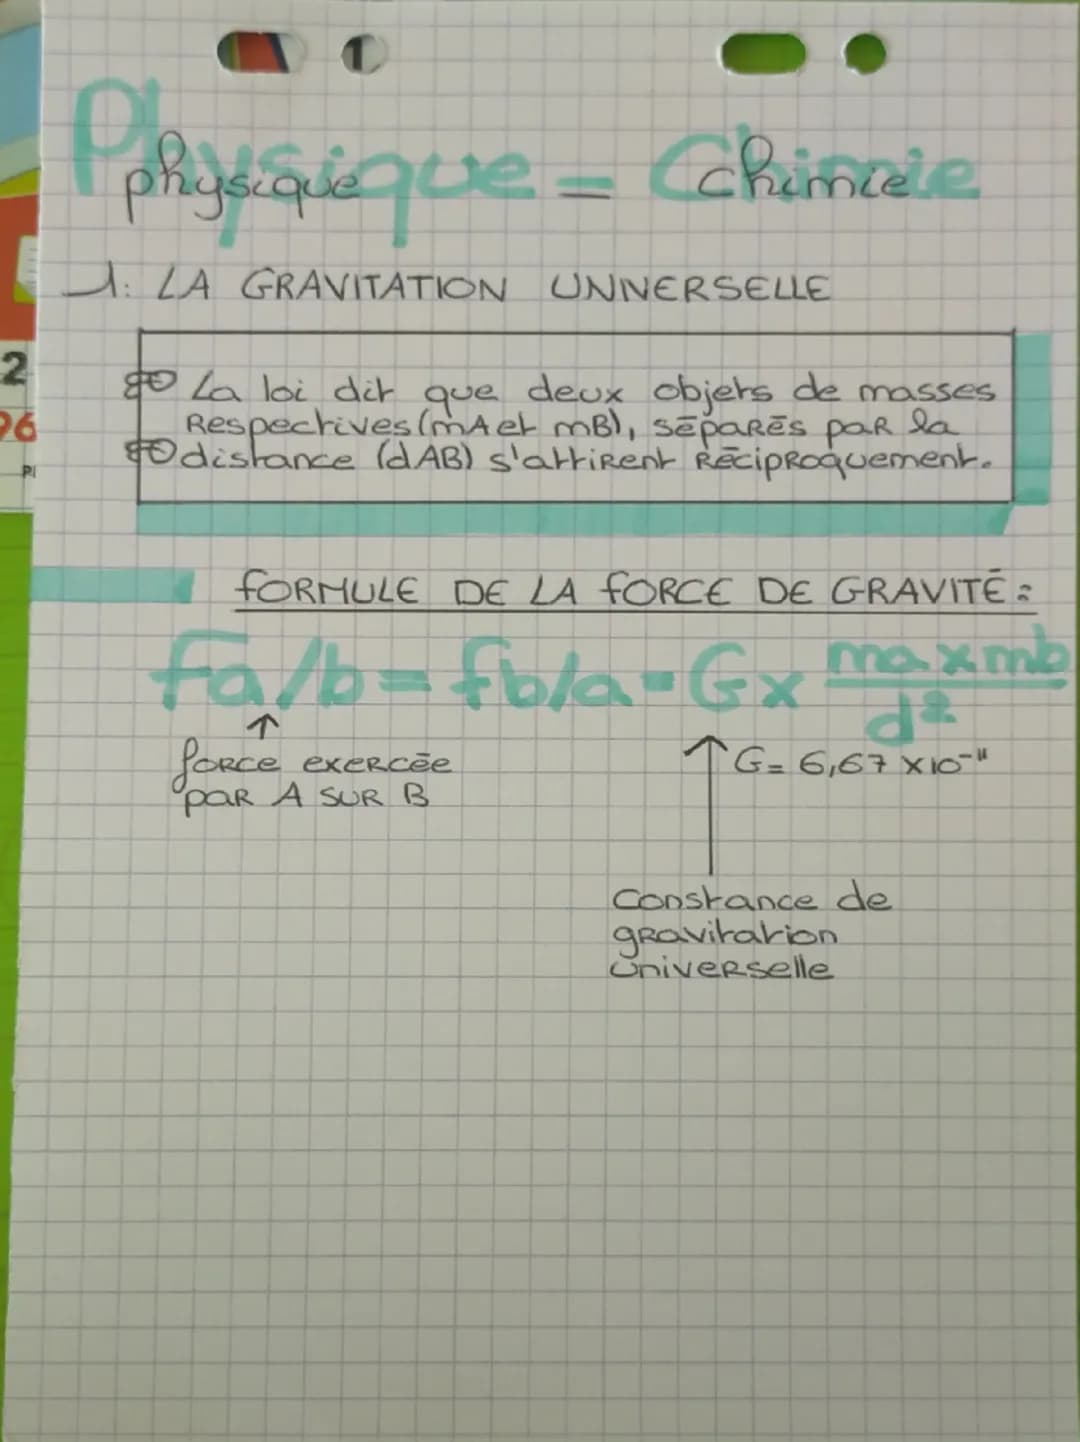 1
Physique - Chimie
physique - chimie
1: LA GRAVITATION UNIVERSELLE
2
96
La loi dit que deux objets de masses
Respectives (mA et mB), séparés par la
distance (dAB) s'attirent Réciproquement.
FORMULE DE LA FORCE DE GRAVITÉ :
Fa/b = fb/a = G x ma x mb
d²
↑
force exercée
par A SUR B
↑ G = 6,67 x 10⁻¹¹
Constance de
gravitation
universelle